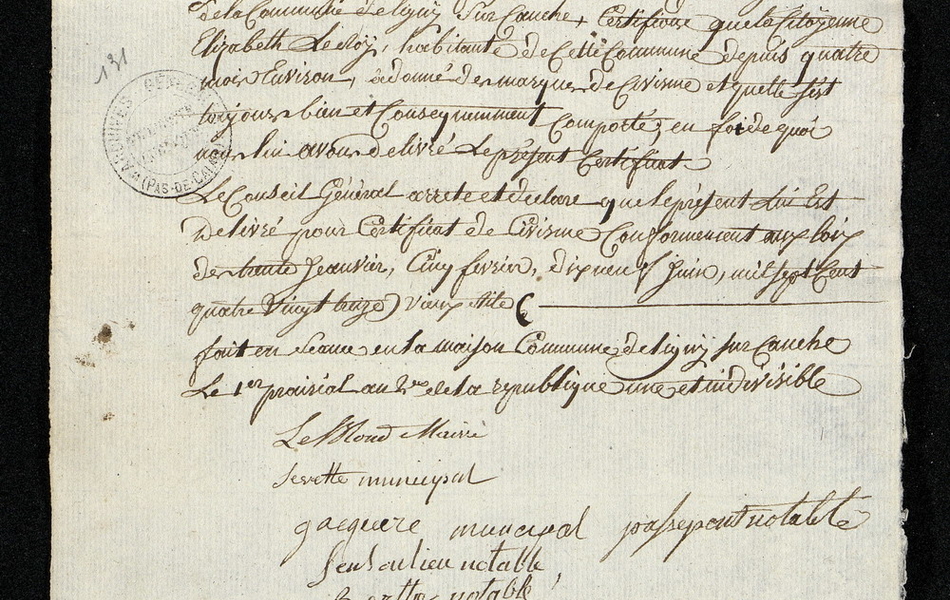 de la Commune de Ligny Sur Canche, Certifions que la Citoyenne
Elizabeth Le Roÿ, habitante de Cette Commune depuis quatre
mois Environ, a donné des marques de Civisme et quelle s'est
toujours bien et Consequemment Comporté; en foi de quoi
nous lui avons delivré Le présent Certificat.
Le Conseil Général arrete et declare que le présent Lui Est
Delivré pour Certificat de Civisme Conformement aux loix
des trente Jeanvier, Cinq fevrier, dixneuf Juin, mil sept Cent
quatre Vingt treize) vieux stile (
fait en séance en la maison Commune de Ligny sur Canche
Le 1er prairial an 2me de la republique une et indivisible
Le Blond Maire
municipal
gacquere municipal passepont notable
notable
notable
131
ARCHIVES GÉN
(PAS-DE-CALAIS)